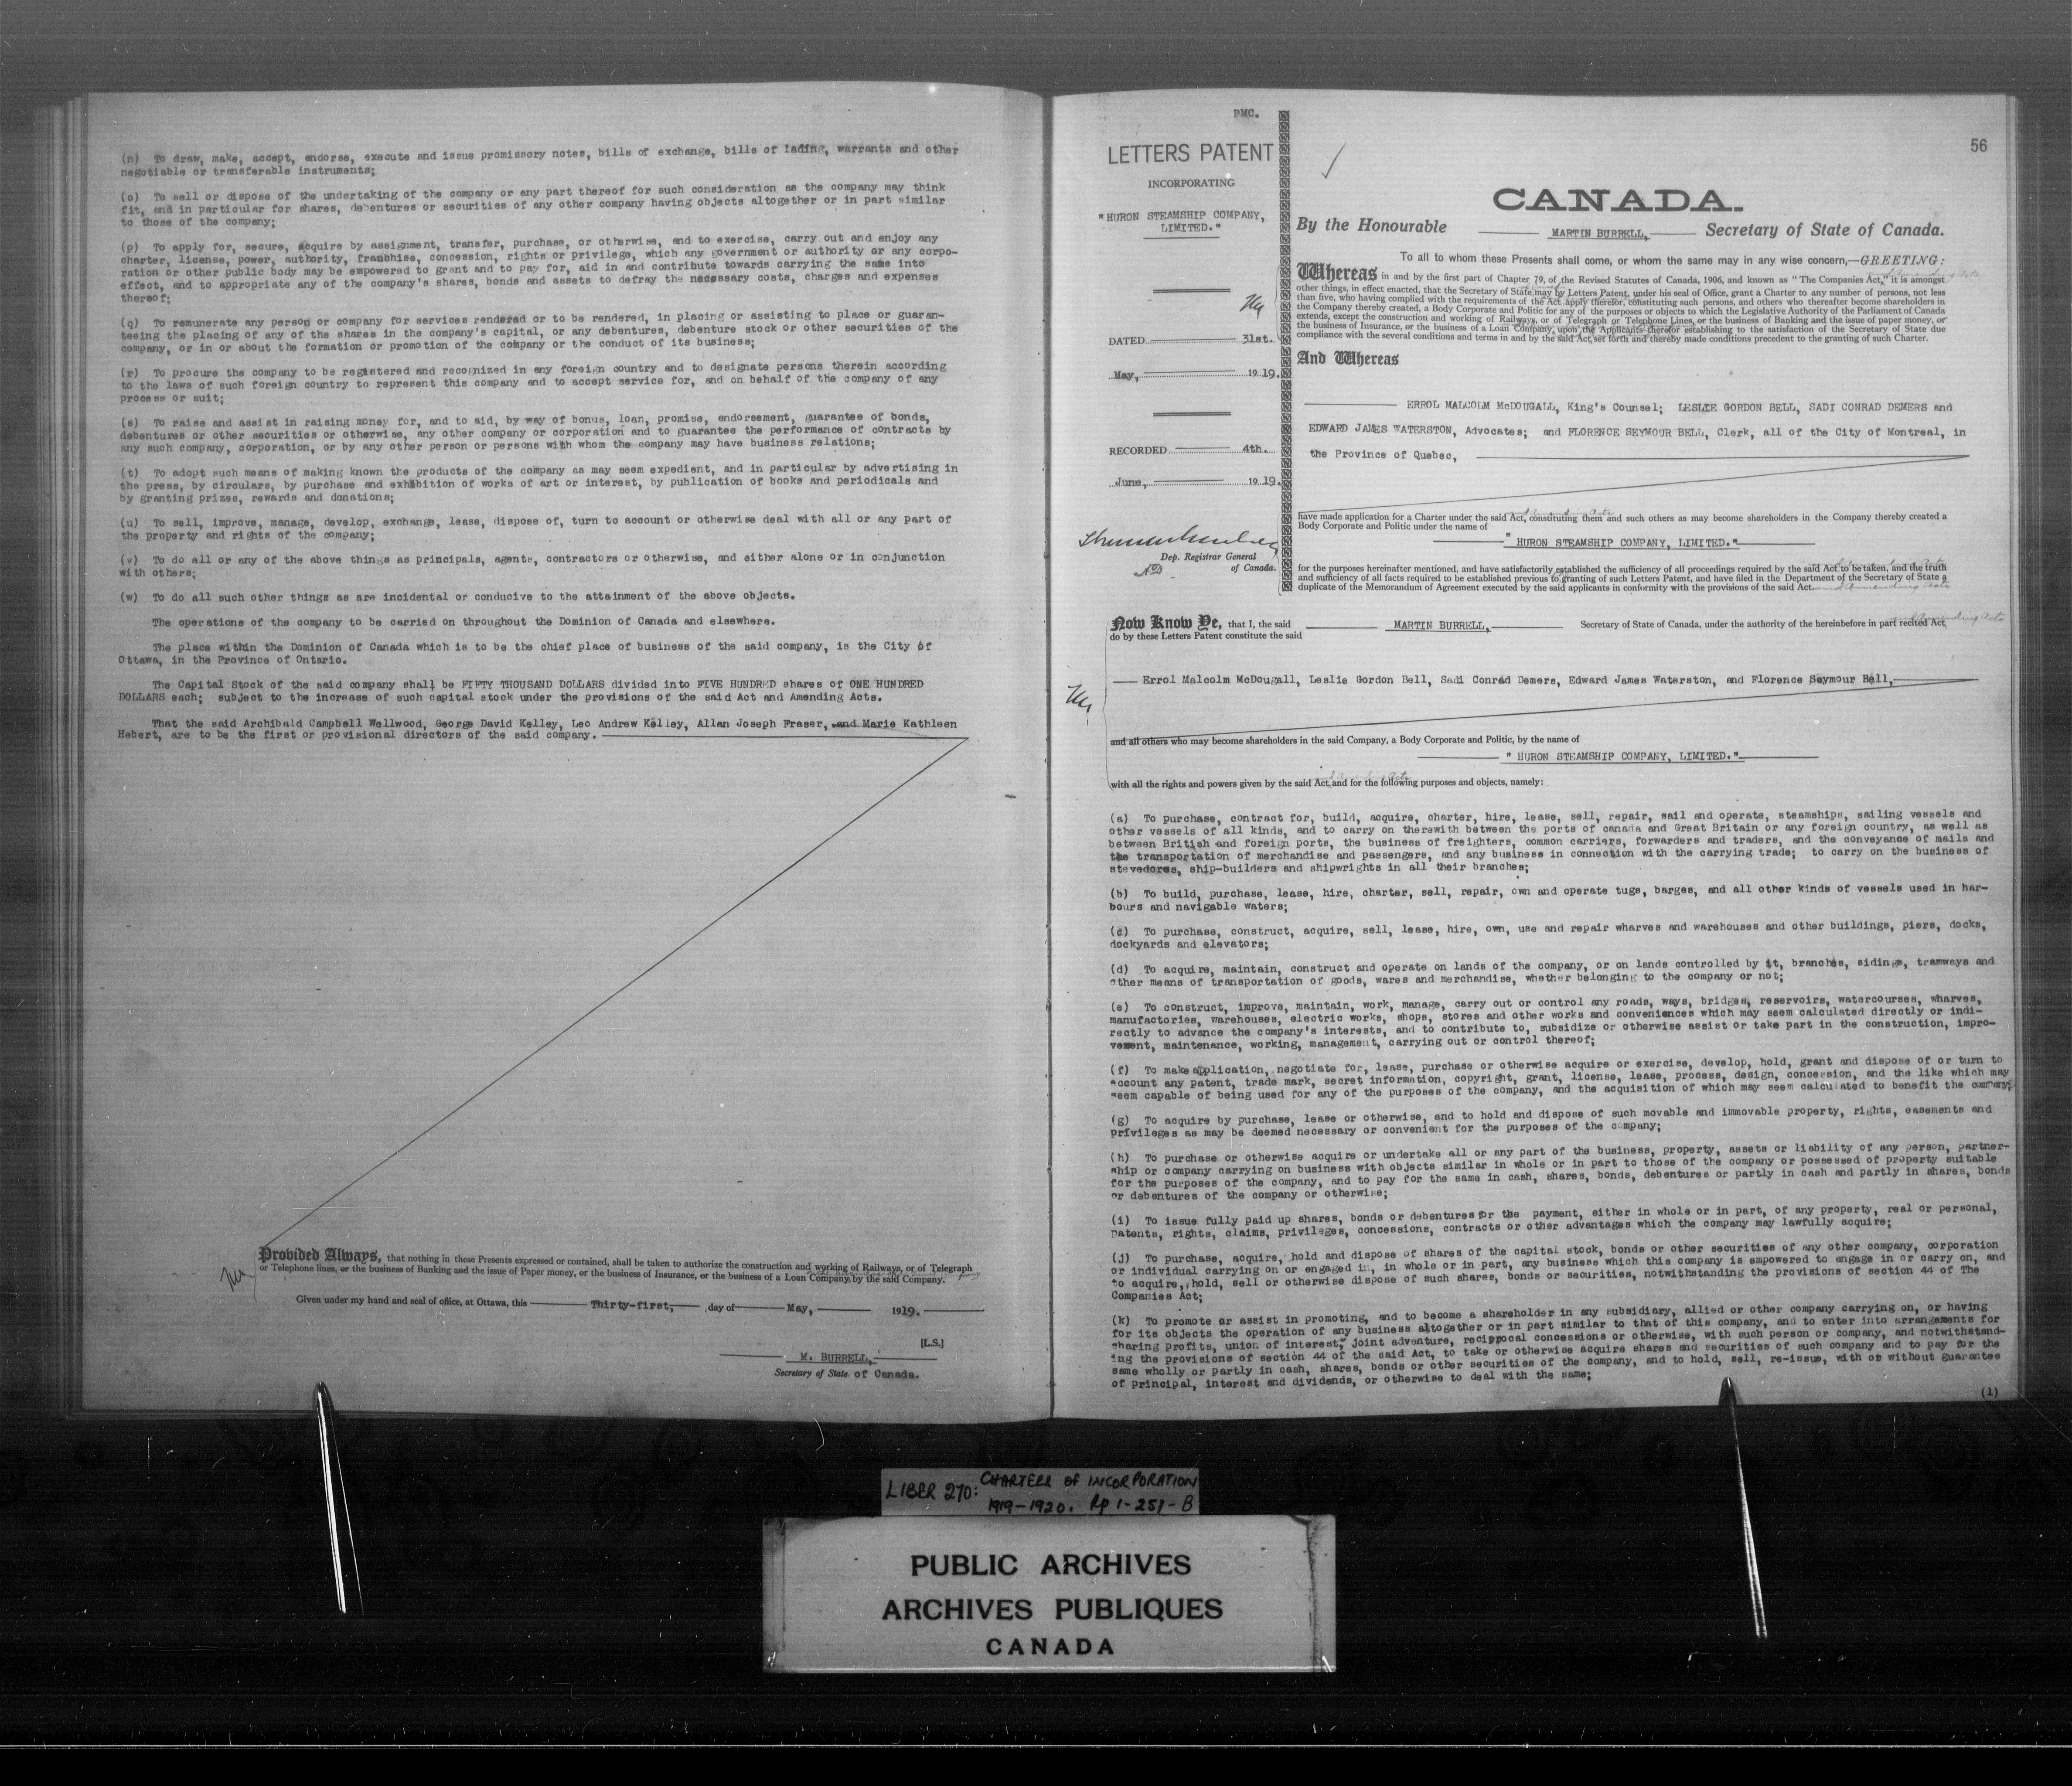 (n) To draw, make, accept, endorse, execute and issue promissory notes, bills of exchange, bills of lading, warrants and other
negotiable or transferable instruments;
(o) To sell or dispose of the undertaking of the company or any part thereof for such consideration as the company may think
fit, and in particular for shares, debentures or securities of any other company having objects altogether or in part similar
to those of the company;
(p) To apply for, secure, acquire by assignment, transfer, purchase, or otherwise, and to exercise, carry out and enjoy any
charter, license, power, authority, franchise, concession, rights or privilege, which any government or authority or any corpo-
ration or other public body may be empowered to grant and to pay for, aid in and contribute towards carrying the same into
effect, and to appropriate any of the company's shares, bonds and assets to defray the necessary costs, charges and expenses
thereof;
(q) To remunerate any person or company for services rendered or to be rendered, in placing or assisting to place or guaran-
teeing the placing of any of the shares in the company's capital, or any debentures, debenture stock or other securities of the
company, or in or about the formation or promotion of the company or the conduct of its business;
(r) To procure the company to be registered and recognized in any foreign country and to designate persons therein according
to the laws of such foreign country to represent this company and to accept service for, and on behalf of the company of any
process or suit;
(s) To raise and assist in raising money for, and to aid, by way of bonus, loan, promise, endorsement, guarantee of bonds,
debentures or other securities or otherwise, any other company or corporation and to guarantee the performance of contracts by
any such company, corporation, or by any other person or persons with whom the company may have business relations;
(t) To adopt such means of making known the products of the company as may seem expedient, and in particular by advertising in
the press, by circulars, by purchase and exhibition of works of art or interest, by publication of books and periodicals and
by granting prizes, rewards and donations;
(u) To sell, improve, manage, develop, exchange, lease, dispose of, turn to account or otherwise deal with all or any part of
the property and rights of the company;
(v) To do all or any of the above things as principals, agents, contractors or otherwise, and either alone or in conjunction
with others;
(w) To do all such other things as are incidental or conducive to the attainment of the above objects.
The operations of the company to be carried on throughout the Dominion of Canada and elsewhere.
The place within the Dominion of Canada which is to be the chief place of business of the said company, is the City of
Ottawa, in the Province of Ontario.
The Capital Stock of the said company shall be FIFTY THOUSAND DOLLARS divided into FIVE HUNDRED shares of ONE HUNDRED
DOLLARS each; subject to the increase of such capital stock under the provisions of the said Act and Amending Acts.
That the said Archibald Campbell Wellwood, George David Kelley, Leo Andrew Kelley, Allan Joseph Fraser, and Marie Kathleen
Hebert, are to be the first or provisional directors of the said company.
Provided Always, that nothing in those Presents expressed or contained, shall be taken to authorize the construction and working of Railways, or of Telegraph
or Telephone lines, or the business of Banking and the issue of Paper money, or the business of Insurance, or the business of a Loan Company by the said Company.
Given under my hand and seal of office, at Ottawa, this Thirty-first, day of May, 1919.
[L.S.]
M. BURRELL,
Secretary of State of Canada.
PMC.
56
LETTERS PATENT
INCORPORATING
"HURON STEAMSHIP COMPANY,
LIMITED."
DATED 31st.
May, 1919.
RECORDED 4th.
June, 1919.
Dep. Registrar General
of Canada.
CANADA.
By the Honourable MARTIN BURRELL, Secretary of State of Canada.
To all to whom these Presents shall come, or whom the same may in any wise concern,—GREETING:
Whereas in and by the first part of Chapter 79, of the Revised Statutes of Canada, 1906, and known as "The Companies Act," it is amongst
other things, in effect enacted, that the Secretary of State may by Letters Patent, under his seal of Office, grant a Charter to any number of persons, not less
than five, who having complied with the requirements of the Act apply therefor, constituting such persons, and others who thereafter become shareholders in
the Company thereby created, a Body Corporate and Politic for any of the purposes or objects to which the Legislative Authority of the Parliament of Canada
extends, except the construction and working of Railways, or of Telegraph or Telephone Lines, or the business of Banking and the issue of paper money, or
the business of Insurance, or the business of a Loan Company, upon the Applicants therefor establishing to the satisfaction of the Secretary of State due
compliance with the several conditions and terms in and by the said Act set forth and thereby made conditions precedent to the granting of such Charter.
And Whereas
ERROL MALCOLM McDOUGALL, King's Counsel; LESLIE GORDON BELL, SADI CONRAD DEMERS and
EDWARD JAMES WATERSTON, Advocates; and FLORENCE SEYMOUR BELL, Clerk, all of the City of Montreal, in
the Province of Quebec,
have made application for a Charter under the said Act, constituting them and such others as may become shareholders in the Company thereby created a
Body Corporate and Politic under the name of
" HURON STEAMSHIP COMPANY, LIMITED."
for the purposes hereinafter mentioned, and have satisfactorily established the sufficiency of all proceedings required by the said Act to be taken, and the truth
and sufficiency of all facts required to be established previous to granting of such Letters Patent, and have filed in the Department of the Secretary of State a
duplicate of the Memorandum of Agreement executed by the said applicants in conformity with the provisions of the said Act. and Amending Acts
Now Know Ye, that I, the said MARTIN BURRELL, Secretary of State of Canada, under the authority of the hereinbefore in part recited Act,
do by these Letters Patent constitute the said
Errol Malcolm McDougall, Leslie Gordon Bell, Sadi Conrad Demers, Edward James Waterston, and Florence Seymour Bell,
and all others who may become shareholders in the said Company, a Body Corporate and Politic, by the name of
" HURON STEAMSHIP COMPANY, LIMITED."
with all the rights and powers given by the said Act, and for the following purposes and objects, namely:
(a) To purchase, contract for, build, acquire, charter, hire, lease, sell, repair, sail and operate, steamships, sailing vessels and
other vessels of all kinds, and to carry on therewith between the ports of canada and Great Britain or any foreign country, as well as
between British and foreign ports, the business of freighters, common carriers, forwarders and traders, and the conveyance of mails and
the transportation of merchandise and passengers, and any business in connection with the carrying trade; to carry on the business of
stevedores, ship-builders and shipwrights in all their branches;
(b) To build, purchase, lease, hire, charter, sell, repair, own and operate tugs, barges, and all other kinds of vessels used in har-
bours and navigable waters;
(c) To purchase, construct, acquire, sell, lease, hire, own, use and repair wharves and warehouses and other buildings, piers, docks,
dockyards and elevators;
(d) To acquire, maintain, construct and operate on lands of the company, or on lands controlled by it, branches, sidings, tramways and
other means of transportation of goods, wares and merchandise, whether belonging to the company or not;
(e) To construct, improve, maintain, work, manage, carry out or control any roads, ways, bridges, reservoirs, watercourses, wharves,
manufactories, warehouses, electric works, shops, stores and other works and conveniences which may seem calculated directly or indi-
rectly to advance the company's interests, and to contribute to, subsidize or otherwise assist or take part in the construction, impro-
vement, maintenance, working, management, carrying out or control thereof;
(f) To make application, negotiate for, lease, purchase or otherwise acquire or exercise, develop, hold, grant and dispose of or turn to
account any patent, trade mark, secret information, copyright, grant, license, lease, process, design, concession, and the like which may
seem capable of being used for any of the purposes of the company, and the acquisition of which may seem calculated to benefit the company;
(g) To acquire by purchase, lease or otherwise, and to hold and dispose of such movable and immovable property, rights, easements and
privileges as may be deemed necessary or convenient for the purposes of the company;
(h) To purchase or otherwise acquire or undertake all or any part of the business, property, assets or liability of any person, partner-
ship or company carrying on business with objects similar in whole or in part to those of the company or possessed of property suitable
for the purposes of the company, and to pay for the same in cash, shares, bonds, debentures or partly in cash and partly in shares, bonds
or debentures of the company or otherwise;
(i) To issue fully paid up shares, bonds or debentures for the payment, either in whole or in part, of any property, real or personal,
patents, rights, claims, privileges, concessions, contracts or other advantages which the company may lawfully acquire;
(j) To purchase, acquire, hold and dispose of shares of the capital stock, bonds or other securities of any other company, corporation
or individual carrying on or engaged in, in whole or in part, any business which this company is empowered to engage in or carry on, and
to acquire, hold, sell or otherwise dispose of such shares, bonds or securities, notwithstanding the provisions of section 44 of The
Companies Act;
(k) To promote or assist in promoting, and to become a shareholder in any subsidiary, allied or other company carrying on, or having
for its objects the operation of any business altogether or in part similar to that of this company, and to enter into arrangements for
sharing profits, union of interest, joint adventure, reciprocal concessions or otherwise, with such person or company, and notwithstand-
ing the provisions of section 44 of the said Act, to take or otherwise acquire shares and securities of such company and to pay for the
same wholly or partly in cash, shares, bonds or other securities of the company, and to hold, sell, re-issue, with or without guarantee
of principal, interest and dividends, or otherwise to deal with the same;
(1)
LIBER 270: CHARTERS OF INCORPORATION
1919-1920. Pp 1-251-B
PUBLIC ARCHIVES
ARCHIVES PUBLIQUES
CANADA